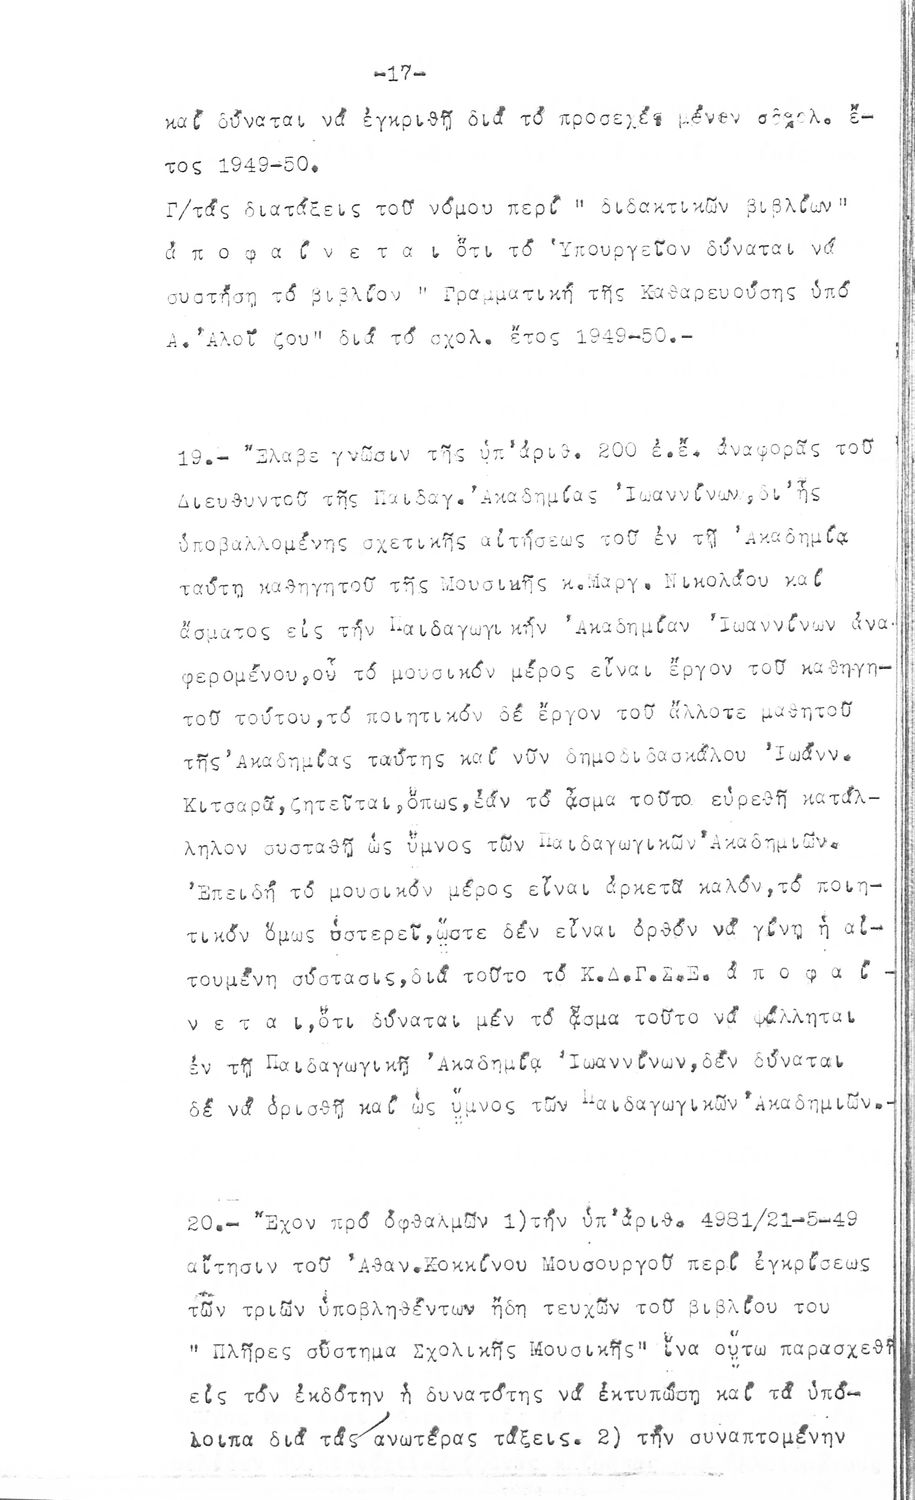 -17-
καί δύναται νά ἐγκριθῇ διά τό προσεχές μόνον σχολ. ἔ-
τος 1949-50.
Γ/τάς διατάξεις τοῦ νόμου περί " διδακτικῶν βιβλίων"
ἀ π ο φ α ί ν ε τ α ι ὅτι τό Ὑπουργεῖον δύναται νά
συστήσῃ τό βιβλίον " Γραμματική τῆς Καθαρευούσης ὑπό
Α. Ἀλοΐζου" διά τό σχολ. ἔτος 1949-50.-
19.- Ἔλαβε γνῶσιν τῆς ὑπ'ἀριθ. 200 ἐ.ἔ. ἀναφορᾶς τοῦ
Διευθυντοῦ τῆς Παιδαγ. Ἀκαδημίας Ἰωαννίνων, δι'ἧς
ὑποβαλλομένης σχετικῆς αἰτήσεως τοῦ ἐν τῇ Ἀκαδημίᾳ
ταύτῃ καθηγητοῦ τῆς Μουσικῆς κ.Μαργ. Νικολάου καί
ᾄσματος εἰς τήν Παιδαγωγικήν Ἀκαδημίαν Ἰωαννίνων ἀνα-
φερομένου, οὗ τό μουσικόν μέρος εἶναι ἔργον τοῦ καθηγη-
τοῦ τούτου, τό ποιητικόν δέ ἔργον τοῦ ἄλλοτε μαθητοῦ
τῆς Ἀκαδημίας ταύτης καί νῦν δημοδιδασκάλου Ἰωάνν.
Κιτσαρᾶ, ζητεῖται, ὅπως, ἐάν τό ᾆσμα τοῦτο εὑρεθῇ κατάλ-
ληλον συσταθῇ ὡς ὕμνος τῶν Παιδαγωγικῶν Ἀκαδημιῶν.
Ἐπειδή τό μουσικόν μέρος εἶναι ἀρκετά καλόν, τό ποιη-
τικόν ὅμως ὑστερεῖ, ὥστε δέν εἶναι ὀρθόν νά γίνῃ ἡ αἰ-
τουμένη σύστασις, διά τοῦτο τό Κ.Δ.Γ.Σ.Ε. ἀ π ο φ α ί -
ν ε τ α ι, ὅτι δύναται μέν τό ᾆσμα τοῦτο νά ψάλληται
ἐν τῇ Παιδαγωγικῇ Ἀκαδημίᾳ Ἰωαννίνων, δέν δύναται
δέ νά ὁρισθῇ καί ὡς ὕμνος τῶν Παιδαγωγικῶν Ἀκαδημιῶν.-
20.- Ἔχον πρό ὀφθαλμῶν 1)τήν ὑπ'ἀριθ. 4981/21-5-49
αἴτησιν τοῦ Ἀθαν.Κοκκίνου Μουσουργοῦ περί ἐγκρίσεως
τῶν τριῶν ὑποβληθέντων ἤδη τευχῶν τοῦ βιβλίου του
" Πλῆρες σύστημα Σχολικῆς Μουσικῆς" ἵνα οὕτω παρασχεθῇ
εἰς τόν ἐκδότην ἡ δυνατότης νά ἐκτυπώσῃ καί τά ὑπό-
λοιπα διά τάς ἀνωτέρας τάξεις. 2) τήν συναπτομένην